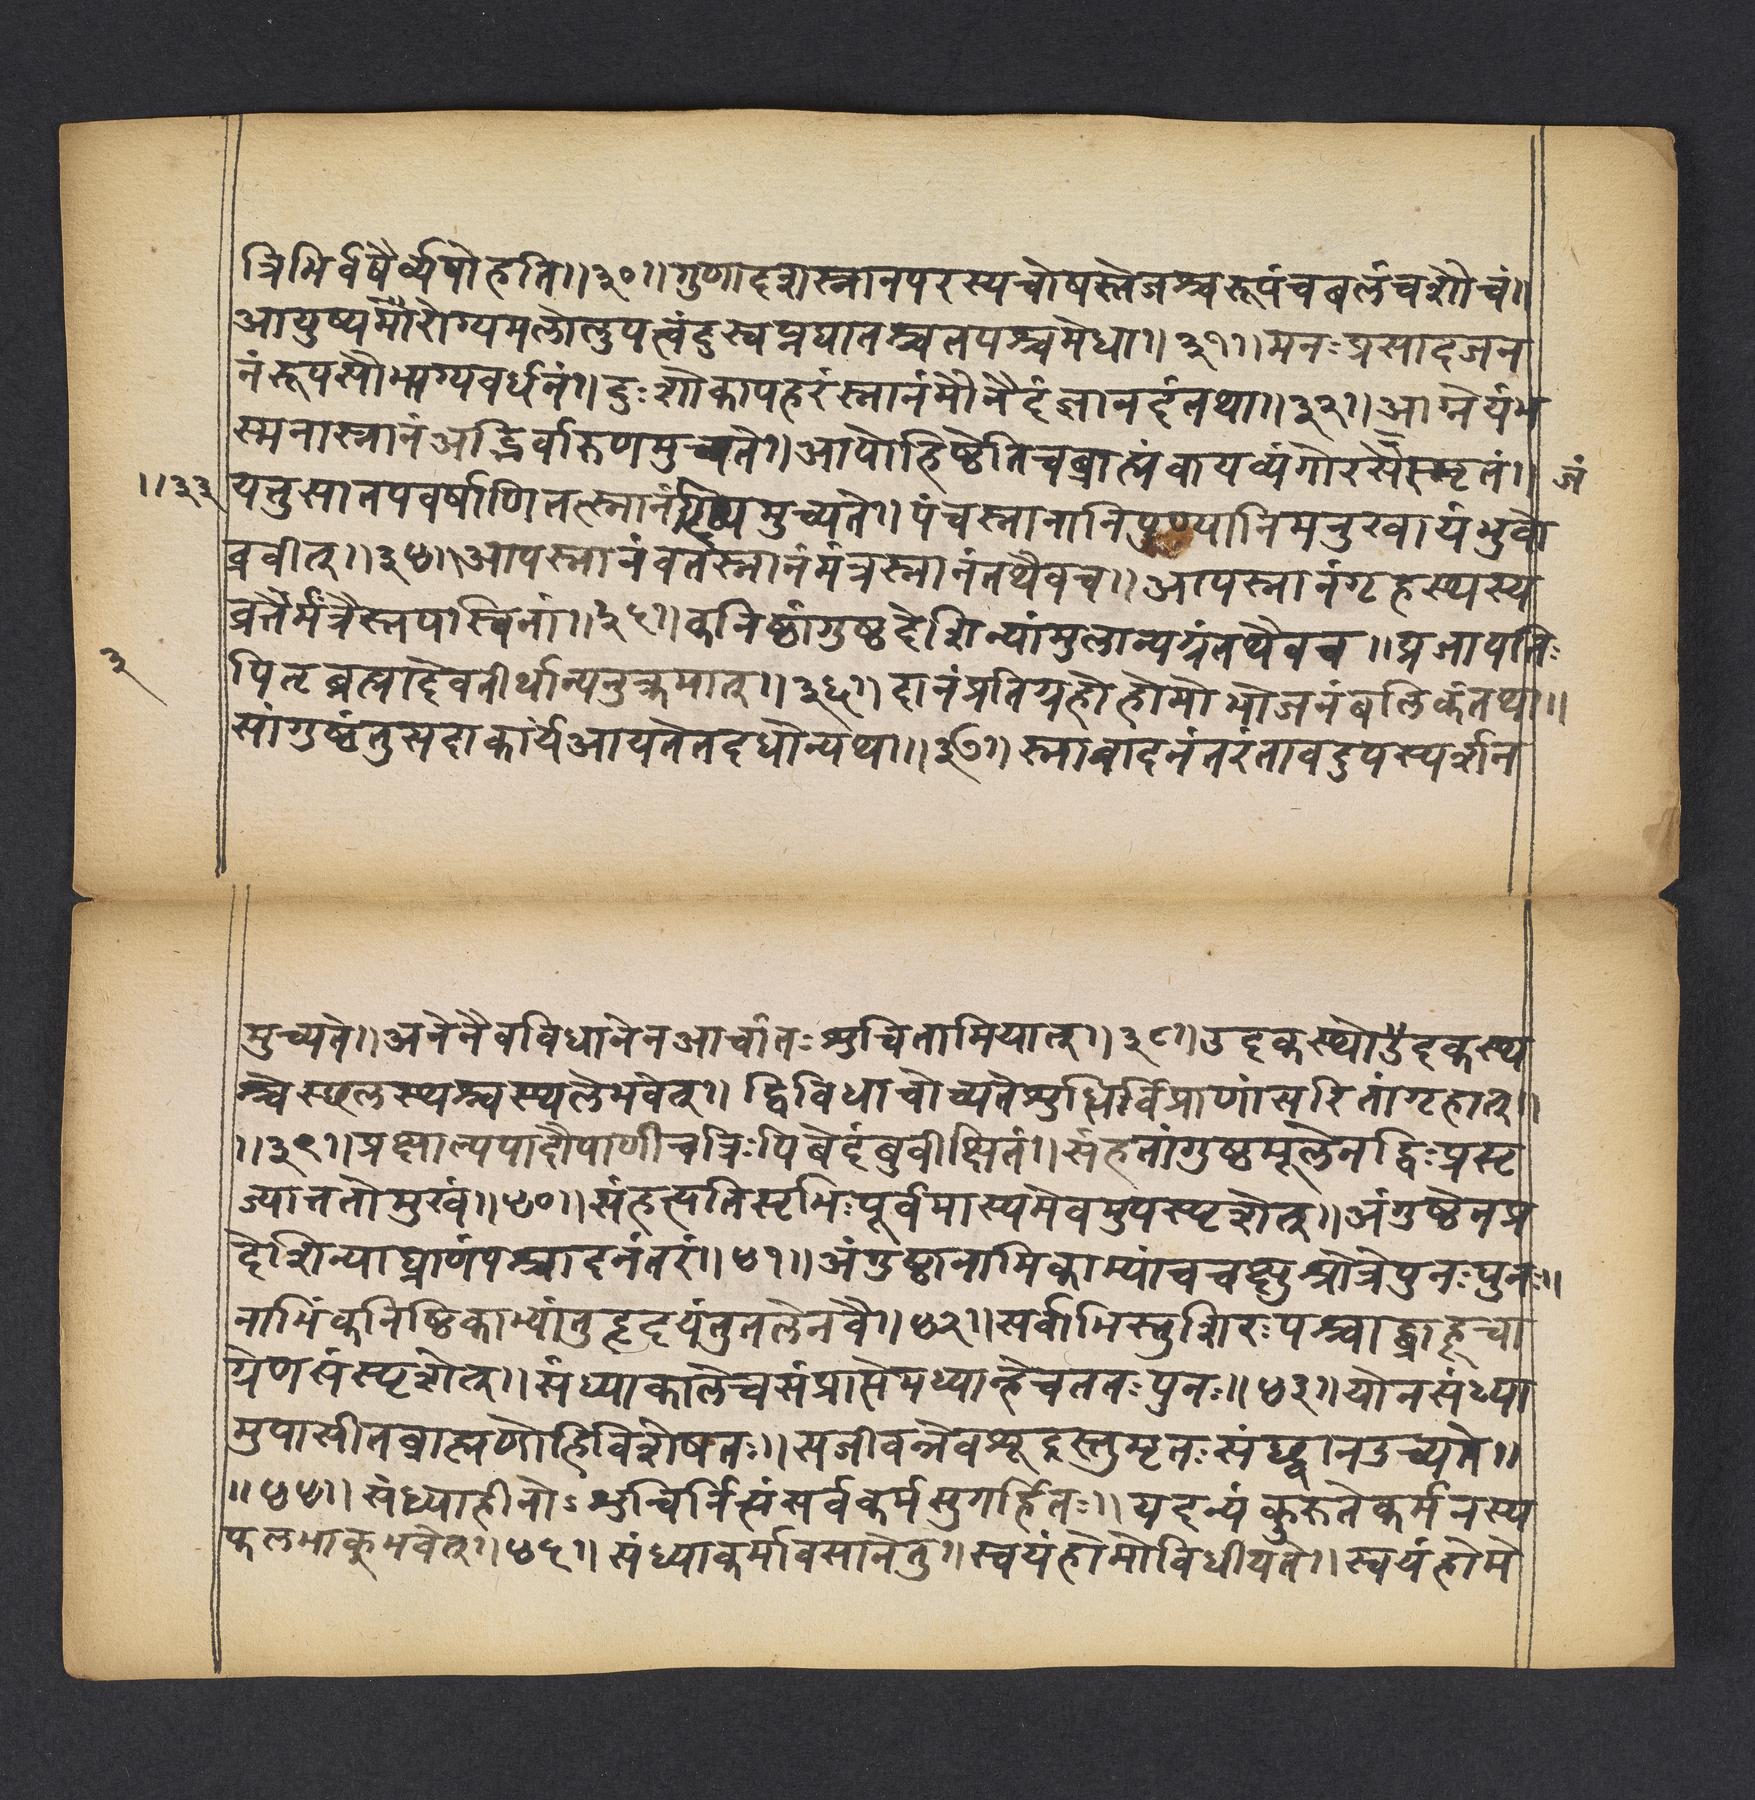 त्रिभिर्वर्षैर्व्यपोहति॥३०॥गुणादशस्नानपरस्यचोषस्तेजश्चरूपंचबलंचशौचं॥
आयुष्यमौरोग्यमलोलुपत्वंदुस्वप्नघातश्चतपश्चमेधा॥३१॥मनःप्रसादजन
नंरूपसौभाग्यवर्धनं॥दुःशोकापहरंस्नानंमौनैदंज्ञानदंतथा॥३२॥आग्नेयंभ
स्मनास्नानंअद्भिर्वारुणमुच्यते॥आपोहिष्ठेतिचब्राह्मंवायव्यंगोरसैस्मृतं॥ जं
॥३३ यत्तुसातपवर्षाणितत्स्नानंदिव्यमुच्यते॥पंचस्नानानिपुण्यानिमनुस्वायंभुवो
ब्रवीत्॥३४॥आपस्नानंवर्तस्नानंमंत्रस्नानंतथैवच॥आपस्नानंगृहस्थस्य
व्रतैर्मंत्रैस्तपस्विनां॥३५॥कनिष्ठांगुष्ठदेशिन्यांमुलान्यग्रंतथैवच॥प्रजापतिः
३ पितृब्रह्मादेवतीर्थान्यनुक्रमात्॥३६॥दानंप्रतिग्रहोहोमोभोजनंबलिकंतथा॥
सांगुष्ठंतुसदाकार्यंआयतेतदधोन्यथा॥३७॥स्नात्वादनंतरंतावदुपस्पर्शन
मुच्यते॥अनेनैवविधानेनआचांतःशुचितामियात्॥३८॥उदकस्थोउदकस्थ
श्चेस्थलस्थश्चस्थलेभवेत्॥द्विविधाचोच्यतेशुधिर्विप्राणांसरितांगृहात्॥
॥३९॥प्रक्षाल्यपादौपाणीचत्रिःपिबेदंबुवीक्षितं॥संहतांगुष्ठमूलेनद्विःप्रसृ
ज्यात्ततोमुखं॥४०॥संहत्यतिसृभिःपूर्वमास्यमेवमुपस्पृशेत्॥अंगुष्ठेनप्र
देशिन्याघ्राणंपश्चादनंतरं॥४१॥अंगुष्ठानामिकाभ्यांचचक्षुश्रोत्रेपुनःपुनः॥
नाभिंकनिष्ठिकाभ्यांतुहृदयंतुतलेनवै॥४२॥सर्वाभिस्तुशिरःपश्चाद्बाहूचा
ग्रेणसंस्पृशेत्॥संध्याकालेचसंप्राप्तेमध्यान्हेचततःपुनः॥४३॥योनसंध्या
मुपासीतब्राह्मणोहिविशेषतः॥सजीवन्नेवशूद्रस्तुमृतःसंश्वानउच्यते॥
॥४४॥संध्याहीनोऽशुचिर्नित्यंसर्वकर्मसुगर्हितः॥यदन्यंकुरुतेकर्मनस्य
फलभाकुभवेत्॥४५॥संध्याकर्मावसानेतु॥स्वयंहोमोविधीयते॥स्वयंहोमे